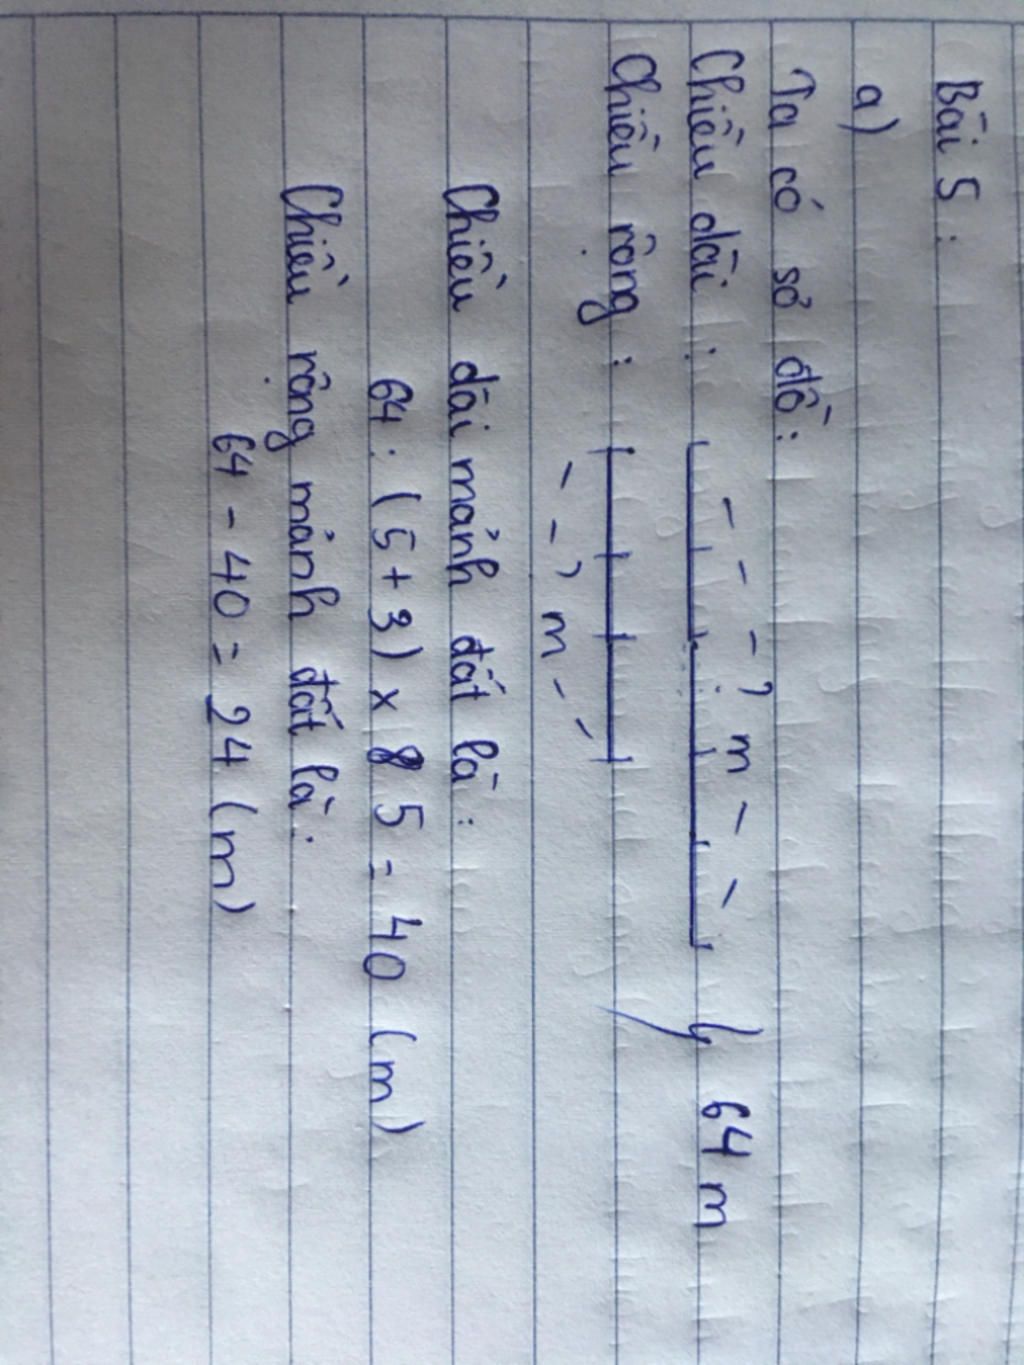 Bài 5 :
a)
Ta có sơ đồ :
Chiều dài : ? m
Chiều rộng : ? m
64 m
Chiều dài mảnh đất là :
64 : (5 + 3) x 5 = 40 (m)
Chiều rộng mảnh đất là :
64 - 40 = 24 (m)